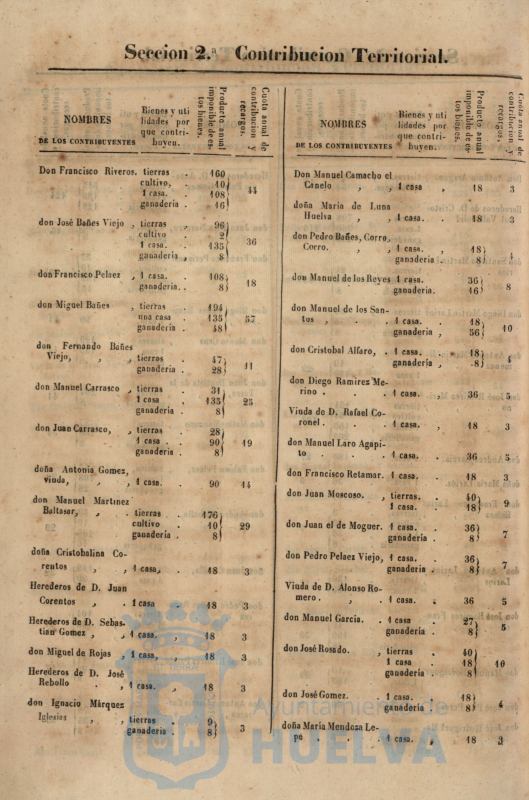 Seccion 2.ª Contribucion Territorial.
NOMBRES
DE LOS CONTRIBUYENTES
Bienes y uti
lidades por
que contri-
buyen.
Producto anual
imponible de es-
tos bienes.
Cuota anual de
contribucion y
recargos.
Don Francisco Riveros. tierras . 160
cultivo, . 40
1 casa. . 108 44
ganaderia . 16
don José Bañes Viejo , tierras , 96
cultivo . 2
1 casa. . 135 36
ganaderia , 8
don Francisco Pelaez , 1 casa. . 108
ganaderia. . 8 18
don Miguel Bañes , tierras . 194
una casa . 135 57
ganaderia . 48
don Fernando Bañes
Viejo, , , tierras . 47
ganaderia . 28 11
don Manuel Carrasco , tierras . 31
1 casa . 135 25
ganaderia . 8
don Juan Carrasco, , tierras . 28
1 casa . . 90 19
ganaderia . 8
doña Antonia Gomez,
viuda, , , 1 casa. . 90 14
don Manuel Martinez
Baltasar, , . tierras . 176
cultivo . 10 29
ganaderia . 8
doña Cristobalina Co-
rentos , , 1 casa, . 18 3
Herederos de D. Juan
Corentos , . 1 casa . 18 3
Herederos de D. Sebas-
tian Gomez , , 1 casa. , 18 3
don Miguel de Rojas , 1 casa. , 18 3
Herederos de D. José
Rebollo . , 1 casa. , 18 3
don Ignacio Márquez
Iglesias , , tierras . 9
ganaderia . 8 3
NOMBRES
DE LOS CONTRIBUYENTES
Bienes y uti
lidades por
que contri-
buyen.
Producto anual
imponible de es-
tos bienes.
Cuota anual de
contribucion y
recargos.
Don Manuel Camacho el
Canelo , , 1 casa , 18 3
doña Maria de Luna
Huelva , , 1 casa. . 18 3
don Pedro Bañes, Corro,
Corro. , , 1 casa. , 18
ganaderia . 8 4
don Manuel de los Reyes 1 casa. 36
ganaderia. 16 8
don Manuel de los San-
tos , . . 1 casa. . 18
ganaderia , 56 10
don Cristobal Alfaro, . 1 casa. . 18
ganaderia , 8 4
don Diego Ramirez Me-
rino . . . 1 casa. . 36 5
Viuda de D. Rafael Co-
ronel. . . 1 casa. . 18 3
don Manuel Laro Agapi-
to . . . 1 casa. . 36 5
don Francisco Retamar. 1 casa. . 18 3
don Juan Moscoso. , tierras. . 40
1 casa . 18 9
don Juan el de Moguer. 1 casa. . 36
ganaderia . 8 7
don Pedro Pelaez Viejo, 1 casa. . 36
ganaderia . 8 7
Viuda de D. Alonso Ro-
mero. , . 1 casa. . 36 5
don Manuel Garcia. . 1 casa . 27
ganaderia . 8 5
don José Rosado. , tierras . 40
1 casa . 18 10
ganaderia . 8
don José Gomez. . 1 casa. . 18
ganaderia . 8 4
doña Maria Mendoza Le-
pe . . . 1 casa. , 18 3
Ayuntamiento de
HUELVA